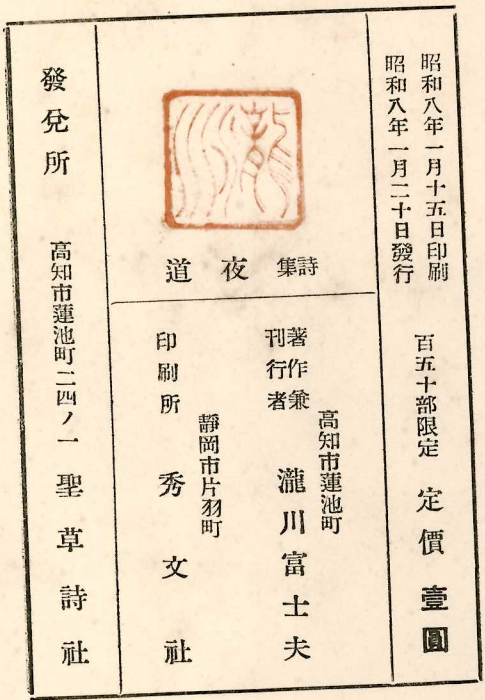 昭和八年一月十五日印刷
昭和八年一月二十日發行
百五十部限定 定價壹圓
瀧川
詩集 夜道
高知市蓮池町
著作兼刊行者 瀧川富士夫
靜岡市片羽町
印刷所 秀文社
發兌所 高知市蓮池町二四ノ一 聖草詩社